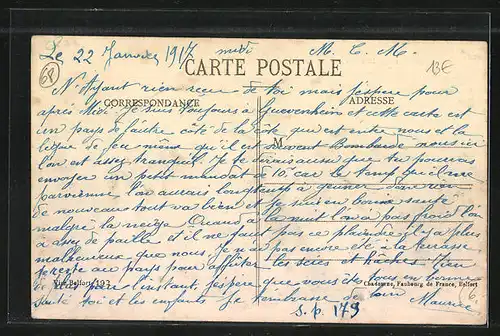 Le 22 Janvier 1917 midi M. C. M.
13E
68
CARTE POSTALE
N'Ayant rien reçu de toi mais j'espère pour
CORRESPONDANCE
ADRESSE
après Midi Je suis toujours à Guevenheim et cette carte est
un pays de l'autre côté de la côte qui est entre nous et la
ligne de feu moins qu'il est souvent Bombardé nous ici
M
l'on est assez tranquil. Je te dirais aussi que tu pouvais
envoyer un petit mandat de 10 car le temps qu'il me
parvienne l'on aurais longtemps à
rien
de nouveau tout va bien et je suis en bonne santé
malgré la neige Quand à la nuit l'on a pas froid l'on
a assez de paille et il ne faut pas se plaindre il y a plus
malheureux que nous. Je n'ai pas encore été à la terrasse
je reste au pays pour affûter les scies et haches. Rien
Vue Belfort 192
Chadourne, Faubourg de France, Belfort
plus pour l'instant j'espère que vous êtes tous en bonne
santé toi et les enfants Je t'embrasse de loin Maurice
S.P. 179
6